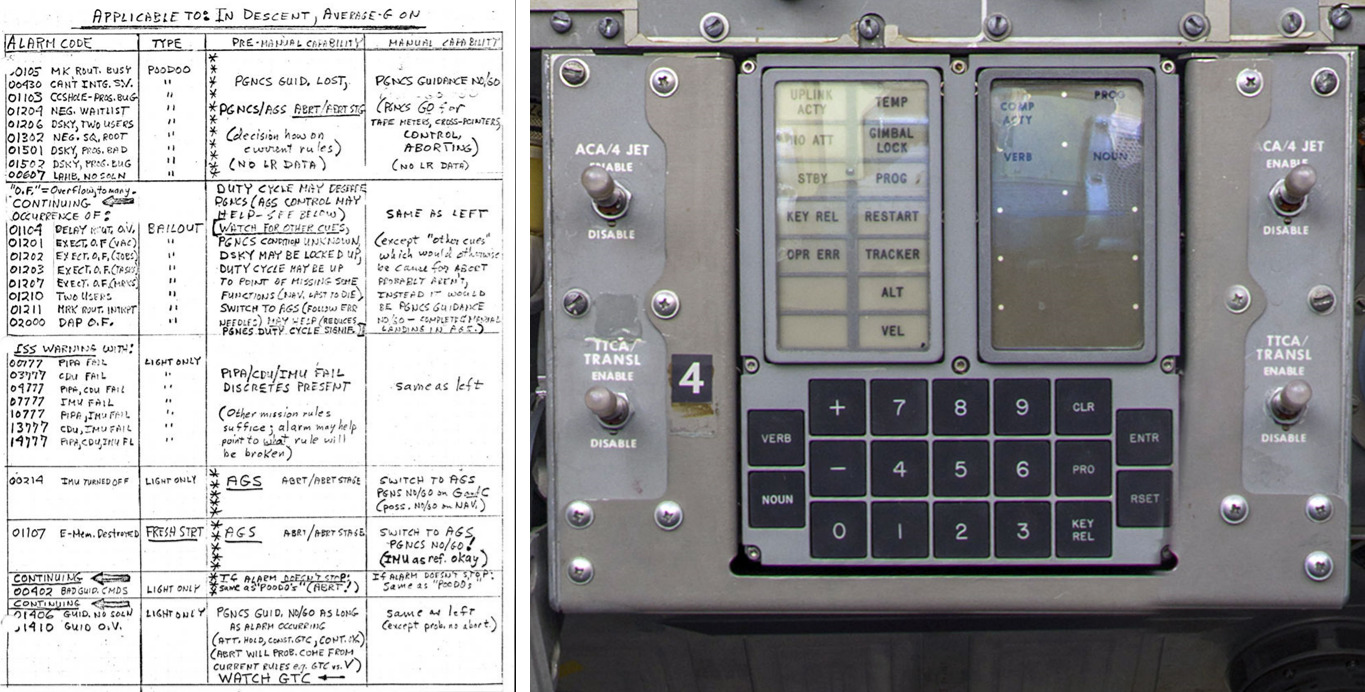 APPLICABLE TO: IN DESCENT, AVERAGE-G ON
ALARM CODE TYPE PRE-MANUAL CAPABILITY MANUAL CAPABILITY
0105 MK ROUT. BUSY POODOO
00430 CAN'T INTG. S.V. " PGNCS GUID. LOST, PGNCS GUIDANCE NO/GO
01103 CCSHOLE-PROG. BUG "
01204 NEG. WAITLIST " PGNCS/AGS ABRT/ABRT STG (PGNCS GO for
01206 DSKY, TWO USERS " TAPE METERS, CROSS-POINTERS,
01302 NEG. SQ. ROOT " (decision how on CONTROL,
01501 DSKY, PROG. BAD " current rules) ABORTING)
01502 DSKY, PROG. BUG " (NO LR DATA) (NO LR DATA)
00607 LAMB. NO SOLN "
"O.F." = Overflow, too many. DUTY CYCLE MAY DEGRADE
CONTINUING PGNCS (AGS CONTROL MAY
OCCURRENCE OF: HELP-SEE BELOW) SAME AS LEFT
01104 DELAY ROUT. O.V. BAILOUT WATCH FOR OTHER CUES,
01201 EXECT. O.F. (VAC) " PGNCS CONDITION UNKNOWN, (except "other cues"
01202 EXECT. O.F. (JOBS) " DSKY MAY BE LOCKED UP, which would otherwise
01203 EXECT. O.F. (TASKS) " DUTY CYCLE MAY BE UP be cause for ABORT
01207 EXECT. O.F. (MRKS) " TO POINT OF MISSING SOME PROBABLY AREN'T,
01210 TWO USERS " FUNCTIONS (NAV. LAST TO DIE). INSTEAD IT WOULD
01211 MRK ROUT. INTRPT " SWITCH TO AGS (FOLLOW ERR BE PGNCS GUIDANCE
02000 DAP O.F. " NEEDLES) MAY HELP (REDUCES NO/GO-COMPLETE MANUAL
PGNCS DUTY CYCLE SIGNIF. LANDING IN AGS.)
ISS WARNING WITH:
00777 PIPA FAIL LIGHT ONLY
03777 CDU FAIL " PIPA/CDU/IMU FAIL
04777 PIPA, CDU FAIL " DISCRETES PRESENT same as left
07777 IMU FAIL "
10777 PIPA, IMU FAIL " (Other mission rules
13777 CDU, IMU FAIL " suffice; alarm may help
14777 PIPA, CDU, IMU FL " point to what rule will
be broken)
00214 IMU TURNED OFF LIGHT ONLY AGS ABRT/ABRT STAGE SWITCH TO AGS
PGNS NO/GO on G and C
(poss. NO/GO on NAV.)
01107 E-Mem. Destroyed FRESH STRT AGS ABRT/ABRT STAGE SWITCH TO AGS
PGNCS NO/GO!
(IMU as ref. okay)
CONTINUING If ALARM DOESN'T STOP: If ALARM DOESN'T STOP:
00402 BAD GUID. CMDS LIGHT ONLY same as "POODO'S" (ABRT!) Same as "POODO's"
CONTINUING
01406 GUID. NO SOLN LIGHT ONLY PGNCS GUID. NO/GO AS LONG same as left
1410 GUID O.V. AS ALARM OCCURRING (except prob. no abort.)
(ATT. HOLD, CONST. GTC,
(ABRT WILL PROB. COME FROM
CURRENT RULES e.g. GTC vs. V)
WATCH GTC
UPLINK ACTY TEMP
NO ATT GIMBAL LOCK
STBY PROG
KEY REL RESTART
OPR ERR TRACKER
ALT
VEL
COMP ACTY PROG
VERB NOUN
ACA/4 JET
ENABLE
DISABLE
TTCA/
TRANSL
ENABLE
DISABLE
4
ACA/4 JET
ENABLE
DISABLE
TTCA/
TRANSL
ENABLE
DISABLE
+ 7 8 9 CLR
VERB ENTR
- 4 5 6 PRO
NOUN RSET
0 1 2 3 KEY REL